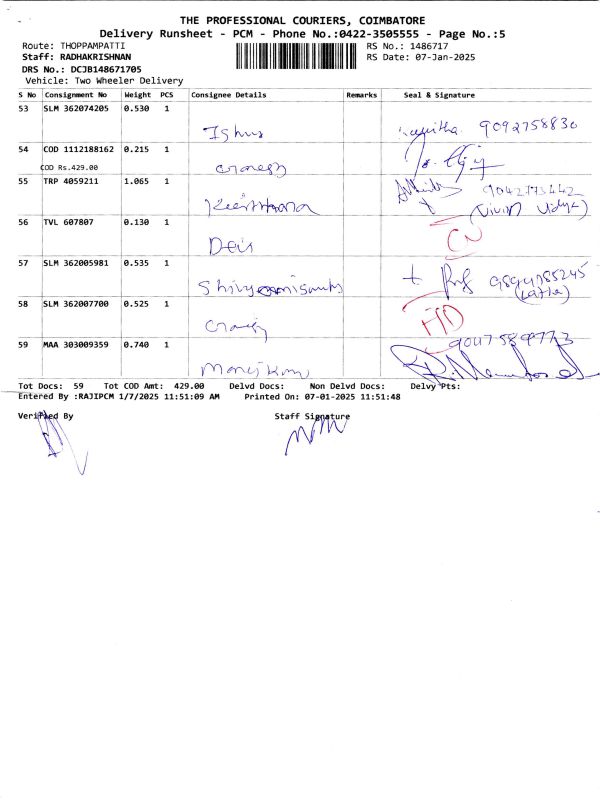 THE PROFESSIONAL COURIERS, COIMBATORE
Delivery Runsheet - PCM - Phone No.:0422-3505555 - Page No.:5
Route: THOPPAMPATTI RS No.: 1486717
Staff: RADHAKRISHNAN RS Date: 07-Jan-2025
DRS No.: DCJB148671705
Vehicle: Two Wheeler Delivery
S No Consignment No Weight PCS Consignee Details Remarks Seal & Signature
53 SLM 362074205 0.530 1
9092758830
54 COD 1112188162 0.215 1
COD Rs.429.00
55 TRP 4059211 1.065 1
Keerthana
56 TVL 607807 0.130 1 CN
57 SLM 362005981 0.535 1
(Latha)
58 SLM 362007700 0.525 1
59 MAA 303009359 0.740 1
Tot Docs: 59 Tot COD Amt: 429.00 Delvd Docs: Non Delvd Docs: Delvy Pts:
Entered By :RAJIPCM 1/7/2025 11:51:09 AM Printed On: 07-01-2025 11:51:48
Verified By Staff Signature